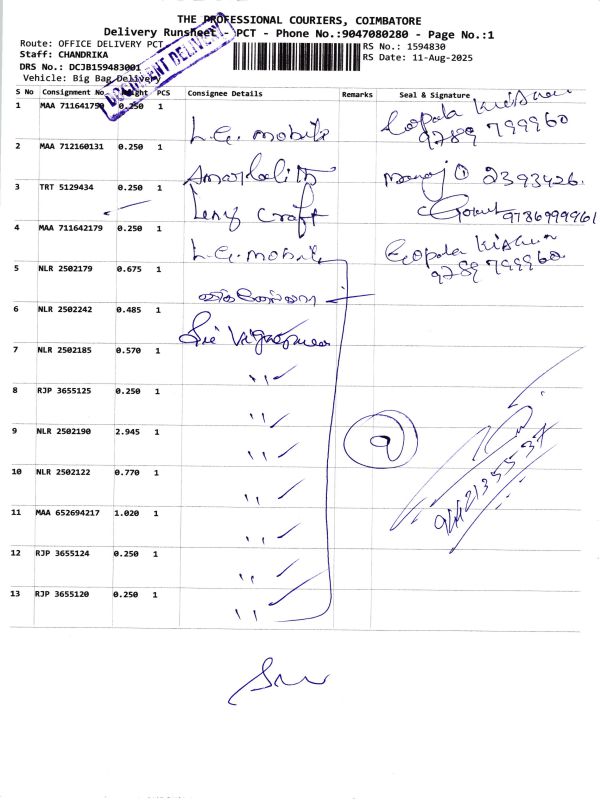 THE PROFESSIONAL COURIERS, COIMBATORE
Delivery Runsheet - PCT - Phone No.:9047080280 - Page No.:1
Route: OFFICE DELIVERY PCT
RS No.: 1594830
Staff: CHANDRIKA
RS Date: 11-Aug-2025
DRS No.: DCJB159483001
Vehicle: Big Bag Delivery
DOCUMENT DELIVERY
S No Consignment No Weight PCS Consignee Details Remarks Seal & Signature
1 MAA 711641790 0.250 1 L.G. mobile Gopala Krishnan
9789 799960
2 MAA 712160131 0.250 1 Manoj 2393426
3 TRT 5129434 0.250 1 Craft 9786999961
4 MAA 711642179 0.250 1 L.G. mobile Gopala Krishna
9789 799960
5 NLR 2502179 0.675 1
6 NLR 2502242 0.485 1 Sri
7 NLR 2502185 0.570 1 ,, ✓
8 RJP 3655125 0.250 1 ,, ✓
9 NLR 2502190 2.945 1 ,, ✓
9
10 NLR 2502122 0.770 1 ,, ✓
11 MAA 652694217 1.020 1 ,, ✓
12 RJP 3655124 0.250 1 ,, ✓
13 RJP 3655120 0.250 1 ,, ✓